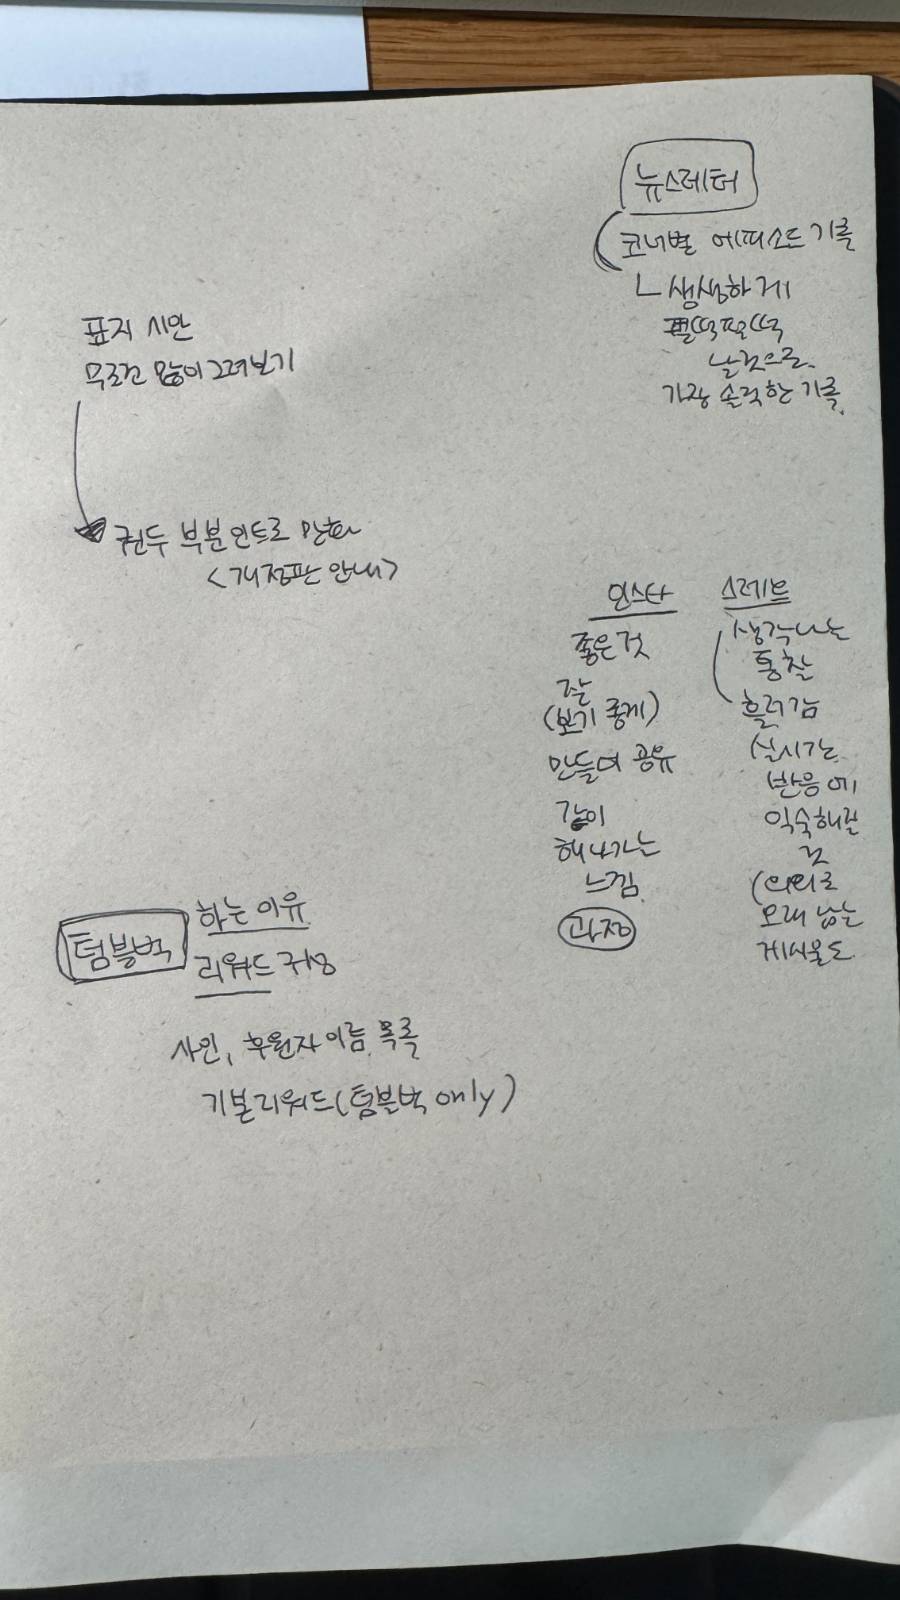 뉴스레터
코너별 에피소드 기록
ㄴ생생하게
펄떡펄떡
날것으로.
가장 솔직한 기록.
표지 시안
무조건 많이 그려보기
권두 부분 인트로 만화
<개정판 안내>
인스타
좋은 것
잘
(보기 좋게)
만들어 공유
같이
해나가는
느낌.
과정
스레드
생각나는
통찰
흘러감
실시간
반응에
익숙해질
것
(의외로
오래 남는
게시물도
텀블벅
하는 이유
리워드 구상
사인, 후원자 이름 목록
기본리워드(텀블벅 only)